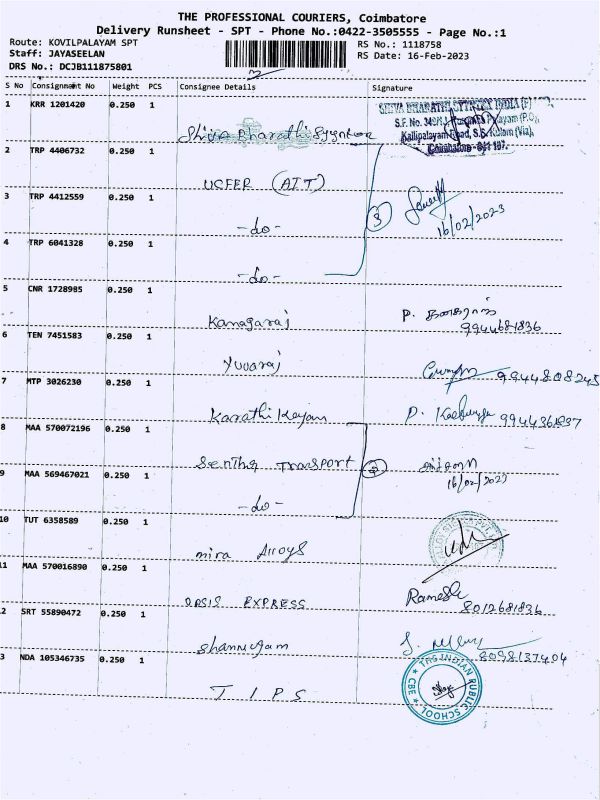 THE PROFESSIONAL COURIERS, Coimbatore
Delivery Runsheet - SPT - Phone No.:0422-3505555 - Page No.:1
Route: KOVILPALAYAM SPT
RS No.: 1118758
Staff: JAYASEELAN
RS Date: 16-Feb-2023
DRS No.: DCJB111875801
S No Consignment No Weight PCS Consignee Details Signature
1 KRR 1201420 0.250 1
SHIVA BHARATHI INDIA (P)
S.F. No.
Kallipalayam Road, S.S. Kulam (Via),
Coimbatore - 641 107.
Shiva Bharathi
2 TRP 4406732 0.250 1
UCFER (AIT)
3 TRP 4412559 0.250 1
-do-
3
16/02/2023
4 TRP 6041328 0.250 1
-do-
5 CNR 1728985 0.250 1
Kanagaraj P. கனகராஜ்
9944681836
6 TEN 7451583 0.250 1
Yuvaraj 9944808245
7 MTP 3026230 0.250 1
Karathikeyan P. 9944361837
8 MAA 570072196 0.250 1
Senthil Transport 2
16/02/2023
9 MAA 569467021 0.250 1
-do-
10 TUT 6358589 0.250 1
mira Alloys
11 MAA 570016890 0.250 1
OASIS EXPRESS Ramesh
8012681836
2 SRT 55890472 0.250 1
Shanmugam
8098137404
3 NDA 105346735 0.250 1
TIPS
THE INDIAN PUBLIC SCHOOL
CBE